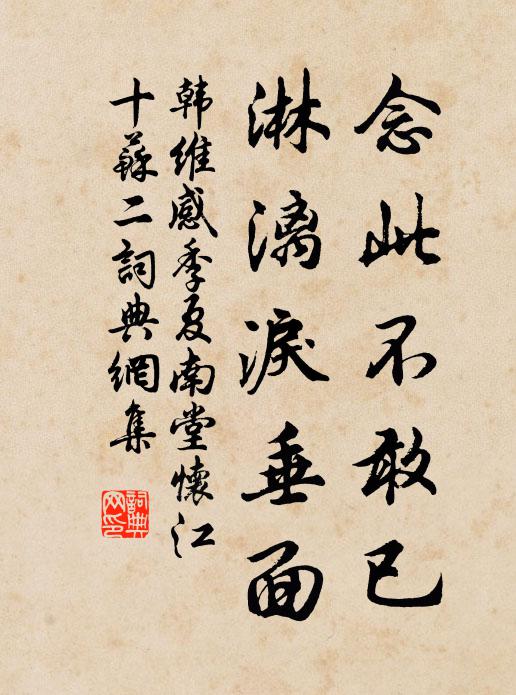 念此不敢已
淋漓淚垂面
韩維感季夏南堂懷江
十蘇二詞典網集
詞典
网印